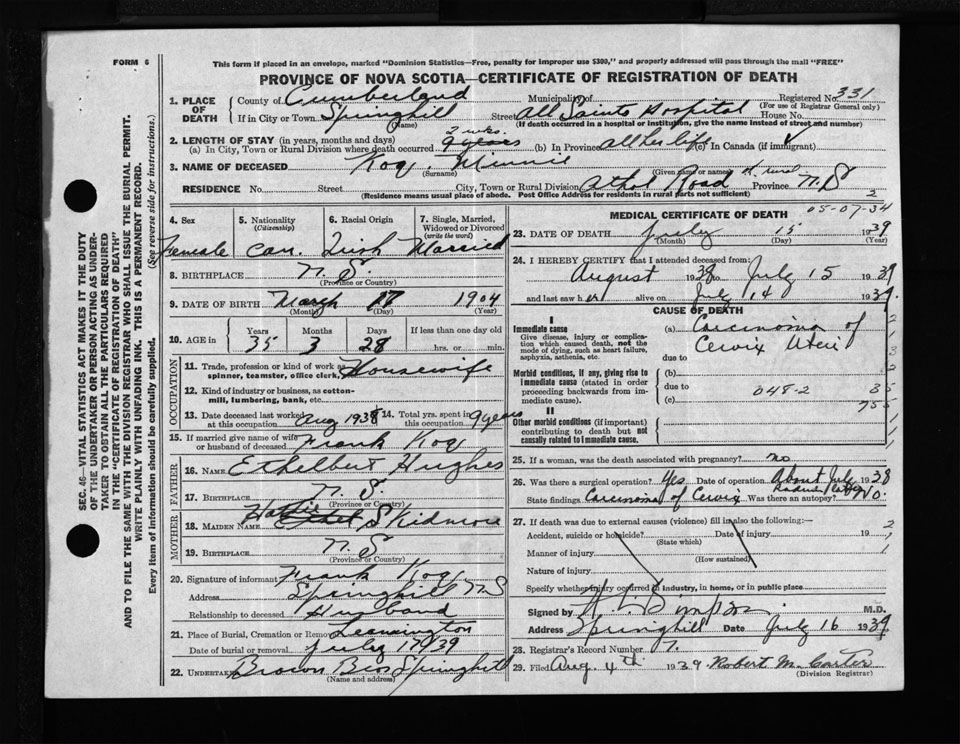 FORM 6
This form if placed in an envelope, marked "Dominion Statistics—Free, penalty for improper use $300," and properly addressed will pass through the mail "FREE"
PROVINCE OF NOVA SCOTIA—CERTIFICATE OF REGISTRATION OF DEATH
SEC. 46—VITAL STATISTICS ACT MAKES IT THE DUTY
OF THE UNDERTAKER OR PERSON ACTING AS UNDER-
TAKER TO OBTAIN ALL THE PARTICULARS REQUIRED
IN THE "CERTIFICATE OF REGISTRATION OF DEATH"
AND TO FILE THE SAME WITH THE DIVISION REGISTRAR WHO SHALL ISSUE THE BURIAL PERMIT.
WRITE PLAINLY WITH UNFADING INK. THIS IS A PERMANENT RECORD.
Every item of information should be carefully supplied. (See reverse side for instructions.)
1. PLACE OF DEATH
County of Cumberland Municipality of Registered No. 331
(For use of Registrar General only)
If in City or Town Springhill Street All Saints Hospital House No.
(Name) (If death occurred in a hospital or institution, give the name instead of street and number)
2. LENGTH OF STAY (in years, months and days) 2 wks.
(a) In City, Town or Rural Division where death occurred 9 years (b) In Province all her life (c) In Canada (if immigrant)
3. NAME OF DECEASED Minnie
(Surname) (Given name or names)
RESIDENCE No. Street City, Town or Rural Division Athol Road rural Province N.S
(Residence means usual place of abode. Post Office Address for residents in rural parts not sufficient) 3
4. Sex Female
5. Nationality (Citizenship) Can.
6. Racial Origin Irish
7. Single, Married, Widowed or Divorced (write the word) Married
8. BIRTHPLACE N. S.
(Province or Country)
9. DATE OF BIRTH March 17 1904
(Month) (Day) (Year)
10. AGE in Years 35 Months 3 Days 28 If less than one day old hrs. or min.
OCCUPATION
11. Trade, profession or kind of work as spinner, teamster, office clerk, Housewife
12. Kind of industry or business, as cotton-mill, lumbering, bank, etc.
13. Date deceased last worked at this occupation Aug 1938 14. Total yrs. spent in this occupation 9 years
15. If married give name of wife or husband of deceased Frank
FATHER
16. NAME Ethelbert Hughes
17. BIRTHPLACE N. S.
(Province or Country)
MOTHER
18. MAIDEN NAME Hattie Skidmore
19. BIRTHPLACE N. S
(Province or Country)
20. Signature of informant Frank
Address Springhill NS
Relationship to deceased Husband
21. Place of Burial, Cremation or Removal Leamington
Date of burial or removal July 17/39
22. UNDERTAKER Brown Bros Springhill
(Name and address)
MEDICAL CERTIFICATE OF DEATH
05-07-34
23. DATE OF DEATH July 15 1939
(Month) (Day) (Year)
24. I HEREBY CERTIFY that I attended deceased from:
August 1938 to July 15 1939
and last saw h er alive on July 14 1939.
CAUSE OF DEATH
I
Immediate cause
Give disease, injury or complication which caused death, not the mode of dying, such as heart failure, asphyxia, asthenia, etc.
(a) Carcinoma of
Cervix Uteri
due to
Morbid conditions, if any, giving rise to immediate cause (stated in order proceeding backwards from immediate cause).
(b)
due to 048-2
(c)
35
755
II
Other morbid conditions (if important) contributing to death but not causally related to immediate cause.
25. If a woman, was the death associated with pregnancy? no
26. Was there a surgical operation? Yes Date of operation About July 1938
State findings Carcinoma of Cervix Was there an autopsy? No.
27. If death was due to external causes (violence) fill in also the following:—
Accident, suicide or homicide? Date of injury 19
(State which)
Manner of injury
(How sustained)
Nature of injury
Specify whether injury occurred in industry, in home, or in public place
Signed by Simpson M.D.
Address Springhill Date July 16 1939
28. Registrar's Record Number 7.
29. Filed Aug. 4th 1939 Robert M. Carter
(Division Registrar)